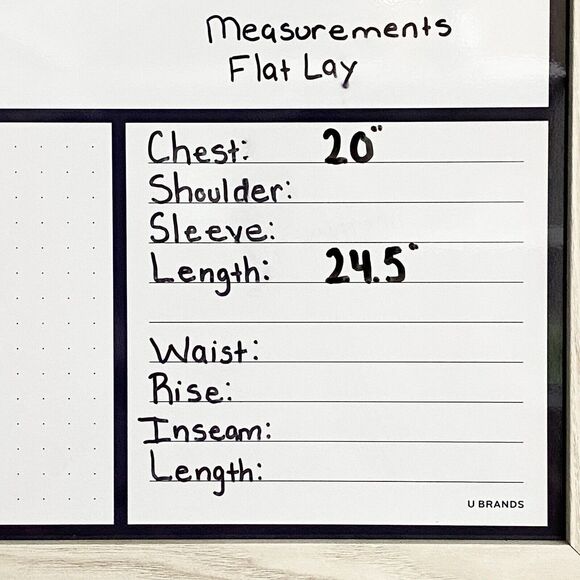 Measurements
Flat Lay
Chest: 20"
Shoulder:
Sleeve:
Length: 24.5"
Waist:
Rise:
Inseam:
Length:
U BRANDS